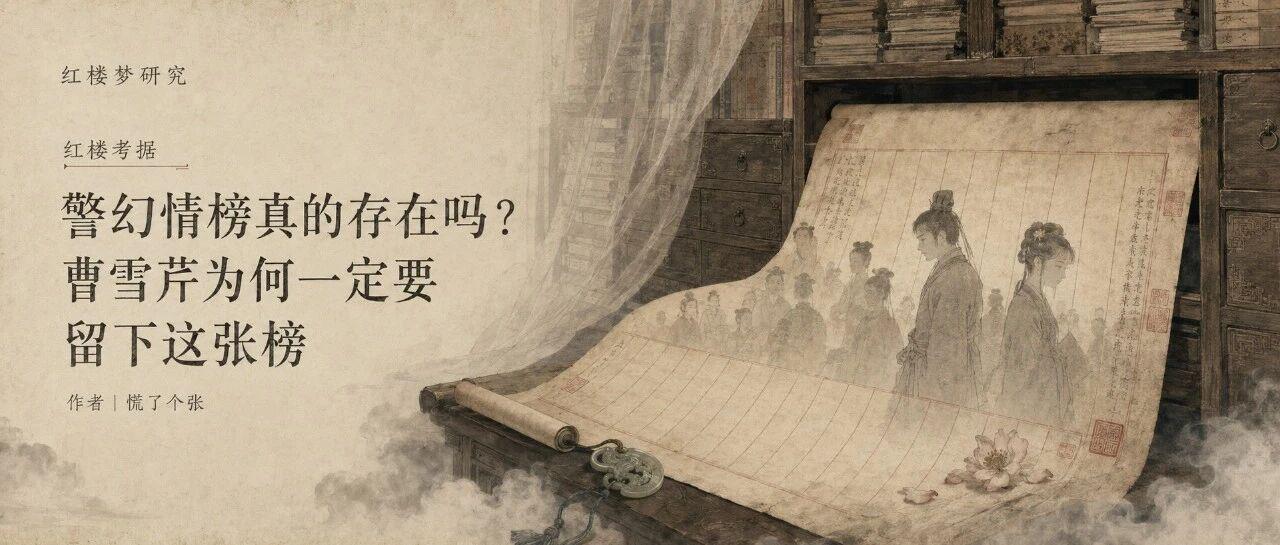 红楼梦研究
红楼考据
警幻情榜真的存在吗？
曹雪芹为何一定要
留下这张榜
作者｜慌了个张